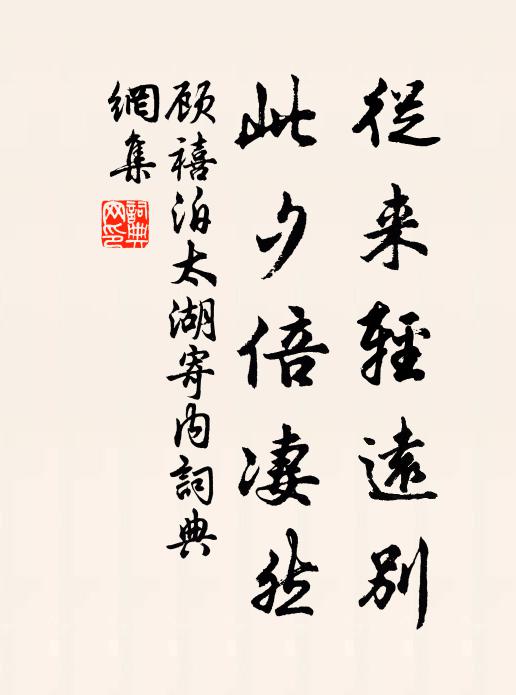 從来輕遠别
此夕倍凄然
顾禧泊太湖寄内詞典
網集
詞典網印